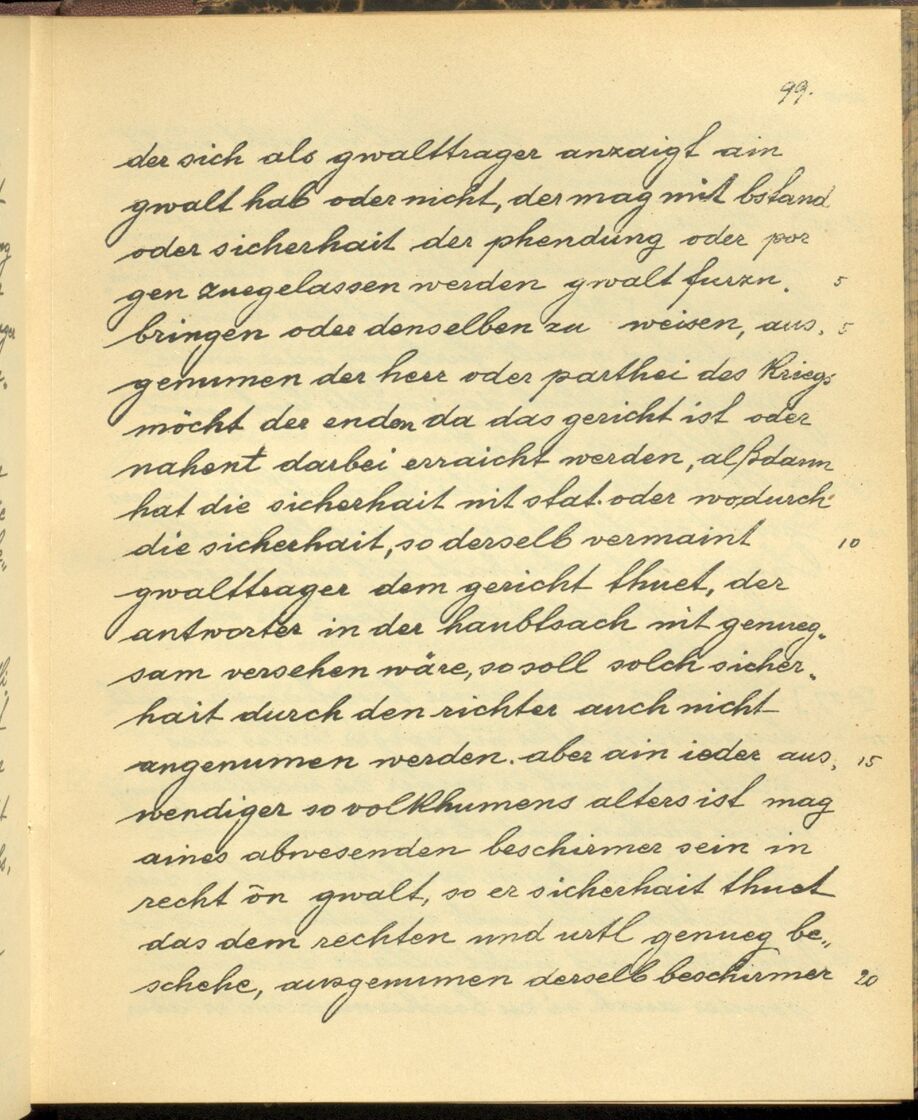 99.
der sich als gwalttrager anzaigt ain
gwalt hab oder nicht, der mag mit bstand
oder sicherhait der phendung oder por
gen zuegelassen werden gwalt furzu. 5
bringen oder denselben zu weisen, aus, 5
genumen der herr oder parthei des kriegs
möcht der enden da das gericht ist oder
nahent darbei erraicht werden, alßdann
hat die sicherhait nit stat. oder wodurch
die sicherhait, so derselb vermaint 10
gwalttrager dem gericht thuet, der
antworter in der haubtsach nit genueg„
sam versehen wäre, so soll solch sicher„
hait durch den richter auch nicht
angenumen werden. aber ain ieder aus, 15
wendiger so volkhumens alters ist mag
aines abwesenden beschirmer sein in
recht ōn gwalt, so er sicherhait thuet
das dem rechten und urtl genueg be„
schehe, ausgenumen derselb beschirmer 20